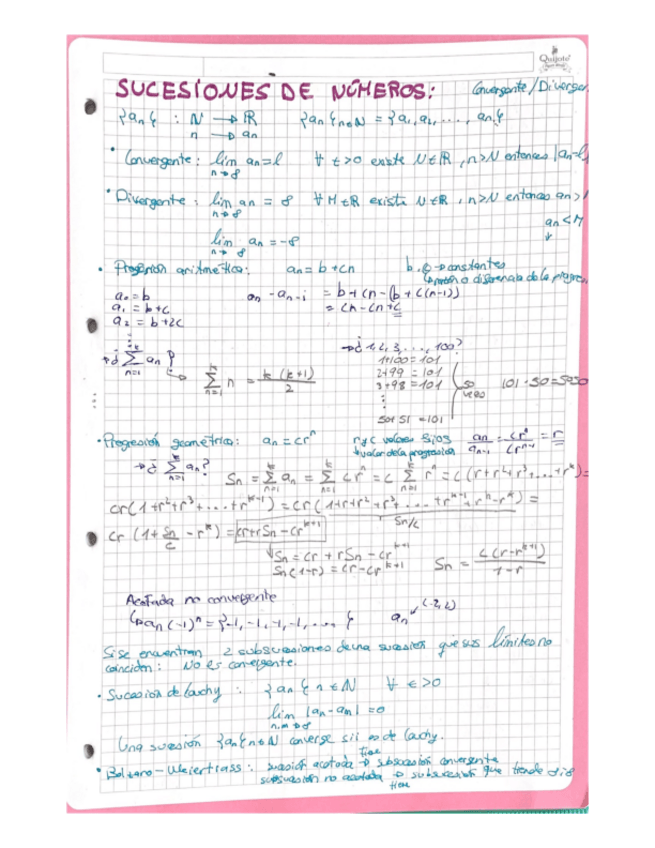 Quijote
SUCESIONES DE NÚMEROS: Convergente/Diverge
{an} : N → R {an}n∈N = {a1, a2, ..., an}
n → an
• Convergente: lim an = l ∀ ε>0 existe N∈R, n>N entonces |an-l
n→∞
• Divergente: lim an = ∞ ∀ M∈R existe N∈R, n>N entonces an>
n→∞
an<M
lim an = -∞
n→∞
• Progresión aritmética: an = b+cn b, c → constantes
o diferencia de la progres
a0 = b an - an-1 = b+cn-(b+c(n-1))
a1 = b+c = cn-cn+c
a2 = b+2c
→ ¿ Σ an ? n=1 k
Σ n = k(k+1)/2 n=1 k
→ ¿1,2,3,...,100?
1+100=101
2+99=101
3+98=101 50 veces 101·50=5050
50+51=101
• Progresión geométrica: an = cr^n r y c valores fijos an/an-1 = cr^n/cr^n-1 = r
→ valor de la progresión
→ ¿ Σ an ? n=1 k
Sn = Σ an = Σ cr^n = c Σ r^n = c(r+r²+r³+...+r^k) =
cr(1+r²+r³+...+r^k-1) = cr(1+r+r²+r³+...+r^k-1+r^k-r^k) =
Sn/c
cr(1+Sn/c - r^k) = cr+rSn-cr^k+1
Sn = cr+rSn-cr^k+1
Sn(1-r) = cr-cr^k+1 Sn = c(r-r^k+1)/1-r
Acotada no convergente
↳ an (-1)^n = {-1, -1, -1, -1, ..., } an (-2,2)
Si se encuentran 2 subsucesiones de una sucesión que sus límites no
coinciden: No es convergente.
• Sucesión de Cauchy: {an} n∈N ∀ ε>0
lim |an-am| = 0
n,m→∞
Una sucesión {an} n∈N converge sii es de Cauchy.
• Bolzano-Weiertrass: sucesión acotada → tiene subsucesión convergente
subsucesión no acotada → tiene subsucesión que tiende a ±∞